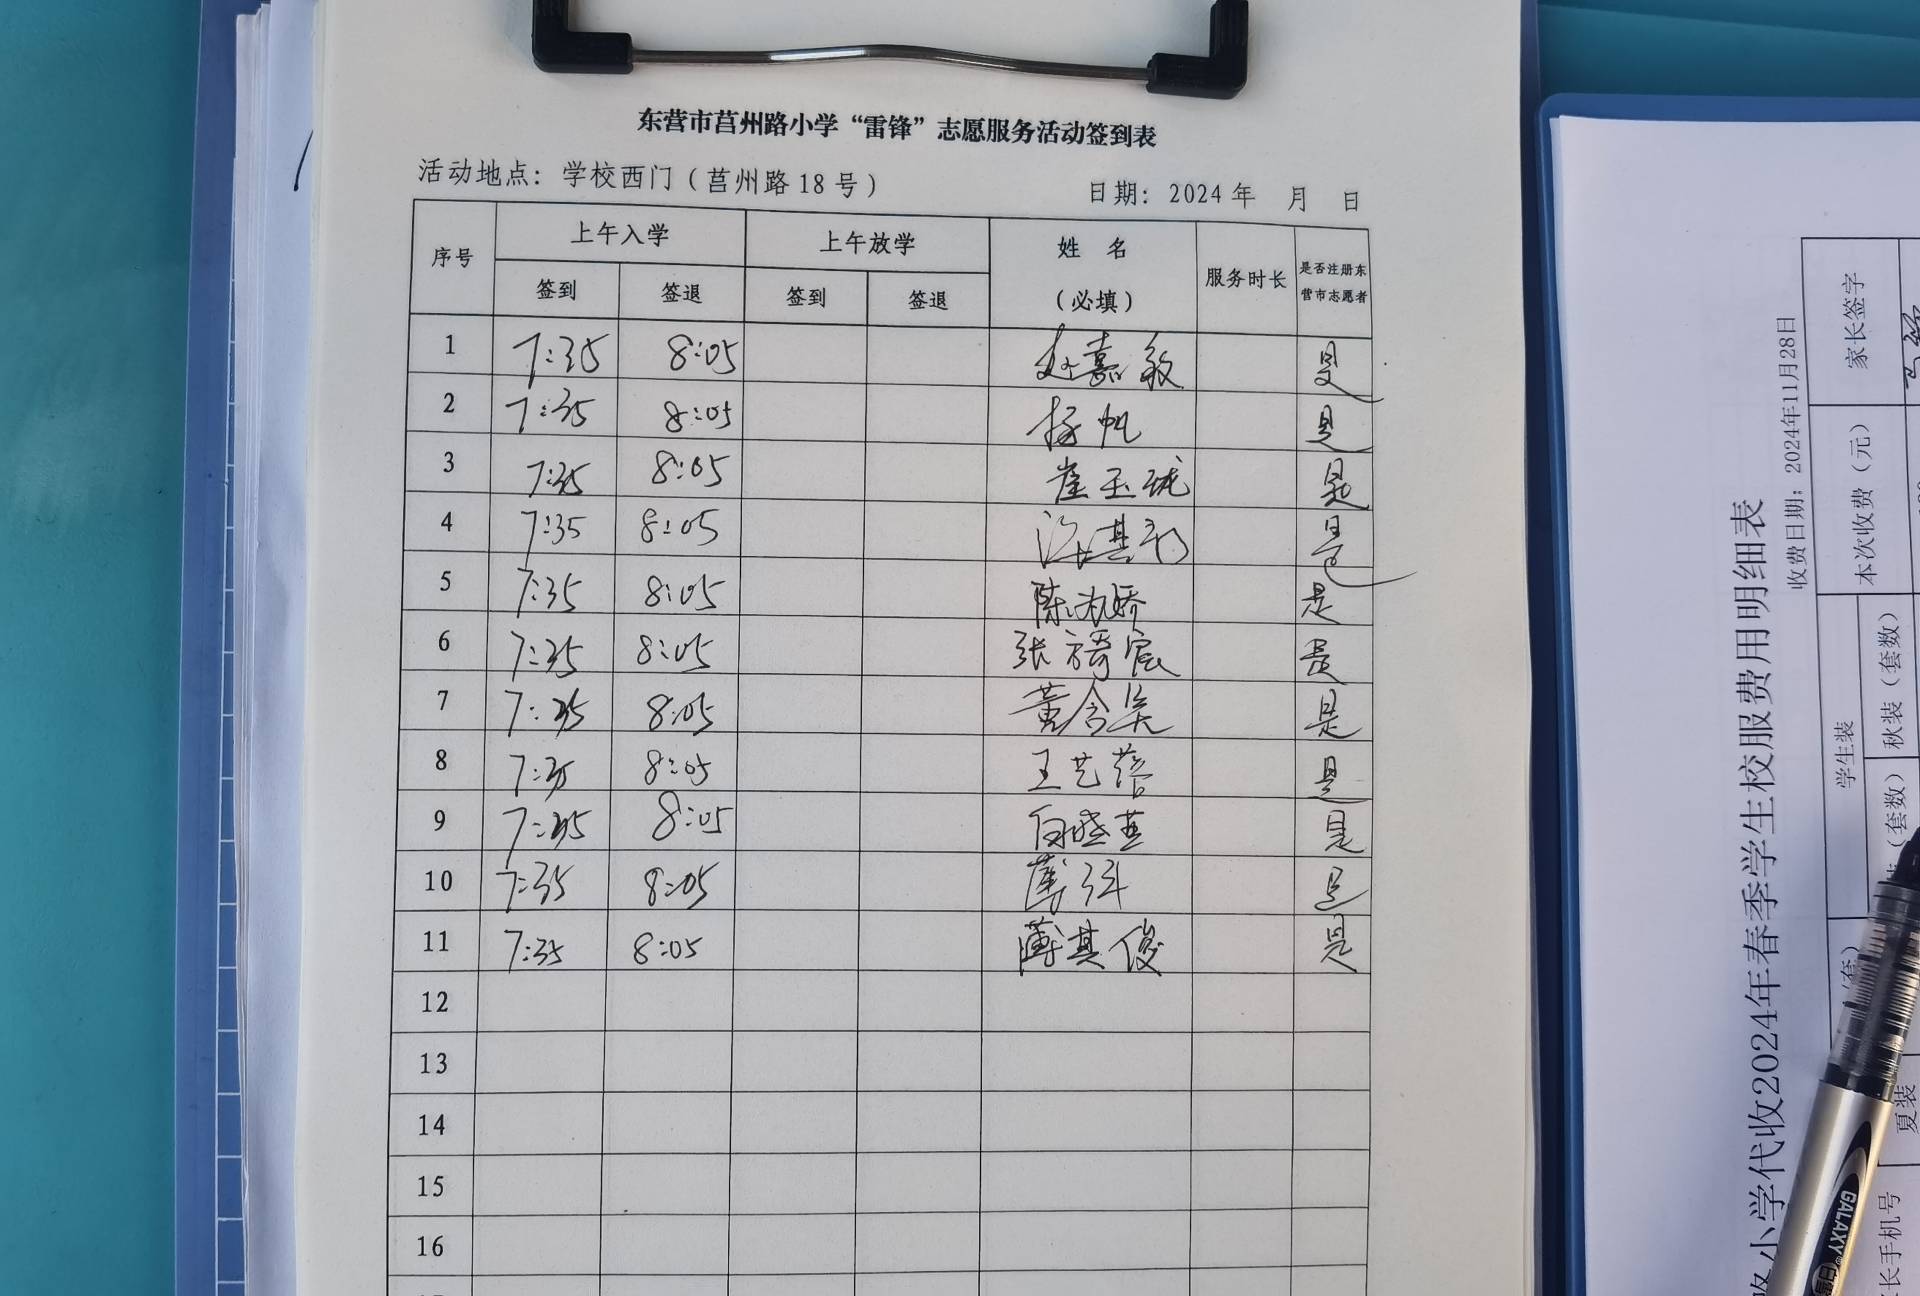 东营市莒州路小学“雷锋”志愿服务活动签到表
活动地点：学校西门（莒州路18号） 日期：2024年 月 日
序号 上午入学 上午放学 姓 名 服务时长 是否注册东
签到 签退 签到 签退 （必填） 营市志愿者
1 7:35 8:05 赵嘉毅 是
2 7:35 8:05 杨帆 是
3 7:35 8:05 崔玉珑 是
4 7:35 8:05 是
5 7:35 8:05 陈 娇 是
6 7:35 8:05 张 宸 是
7 7:35 8:05 黄 是
8 7:35 8:05 王艺蓓 是
9 7:35 8:05 向晓燕 是
10 7:35 8:05 是
11 7:35 8:05 薄其俊 是
12
13
14
15
16
路小学代收2024年春季学生校服费用明细表
收费日期：2024年11月28日
家长签字
本次收费（元）
学生装
秋装（套数）
（套数）
夏装
长手机号
GALAXY